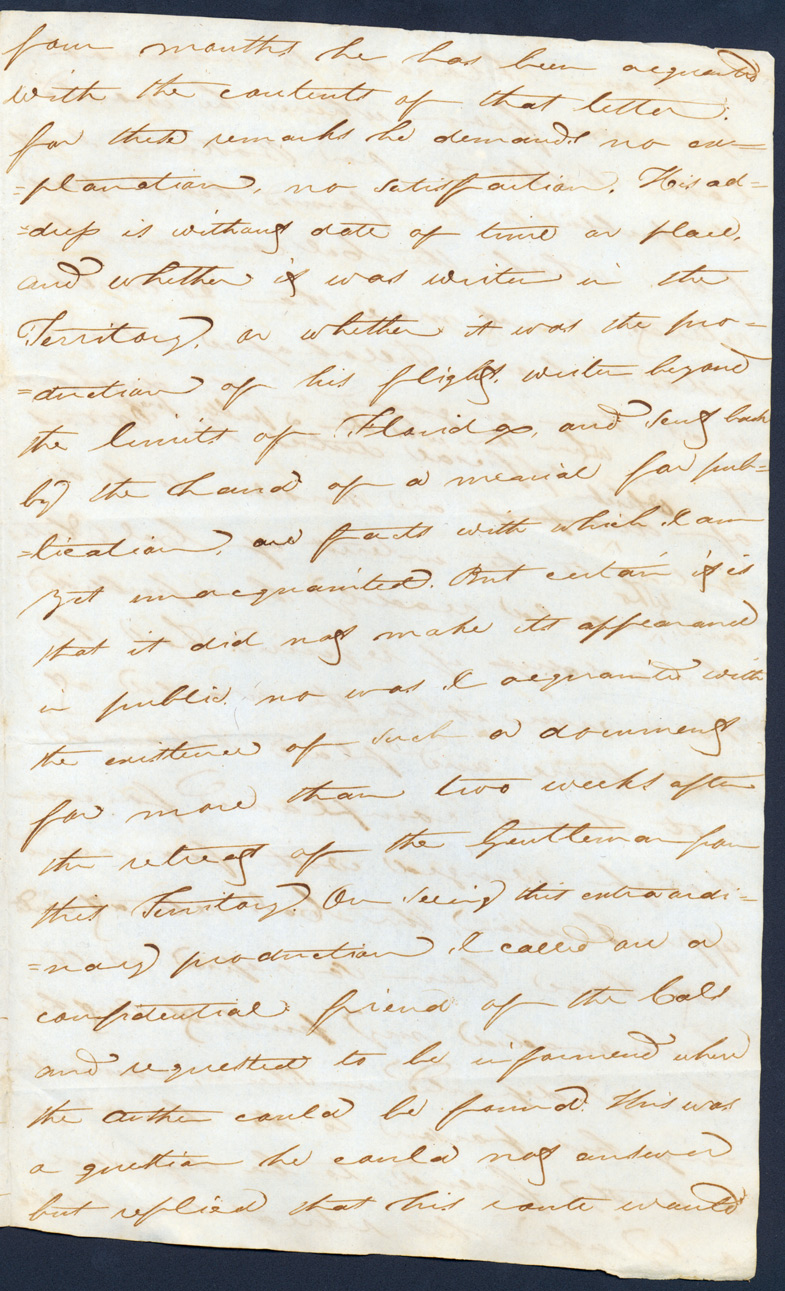 four months he has been acquainted
with the contents of that letter.
for these remarks he demands no ex=
=planation, no satisfaction. His ad=
=dress is without date of time or place,
and whether it was writen in the
Territory, or whether it was the pro=
=duction of his flight, writen beyond
the limits of Florida, and sent back
by the hand of a menial for pub=
=lication, are facts with which I am
yet unacquainted. But certain it is
that it did not make its appearance
in public, no was I acquainted with
the existence of such a document
for more than two weeks after
the retreat of the Gentleman from
this Territory. On seeing this extraordi=
=nary production I called on a
confidential friend of the Cols
and requested to be informend where
the Auther could be found. This was
a question he could not answer
but replied that his route would